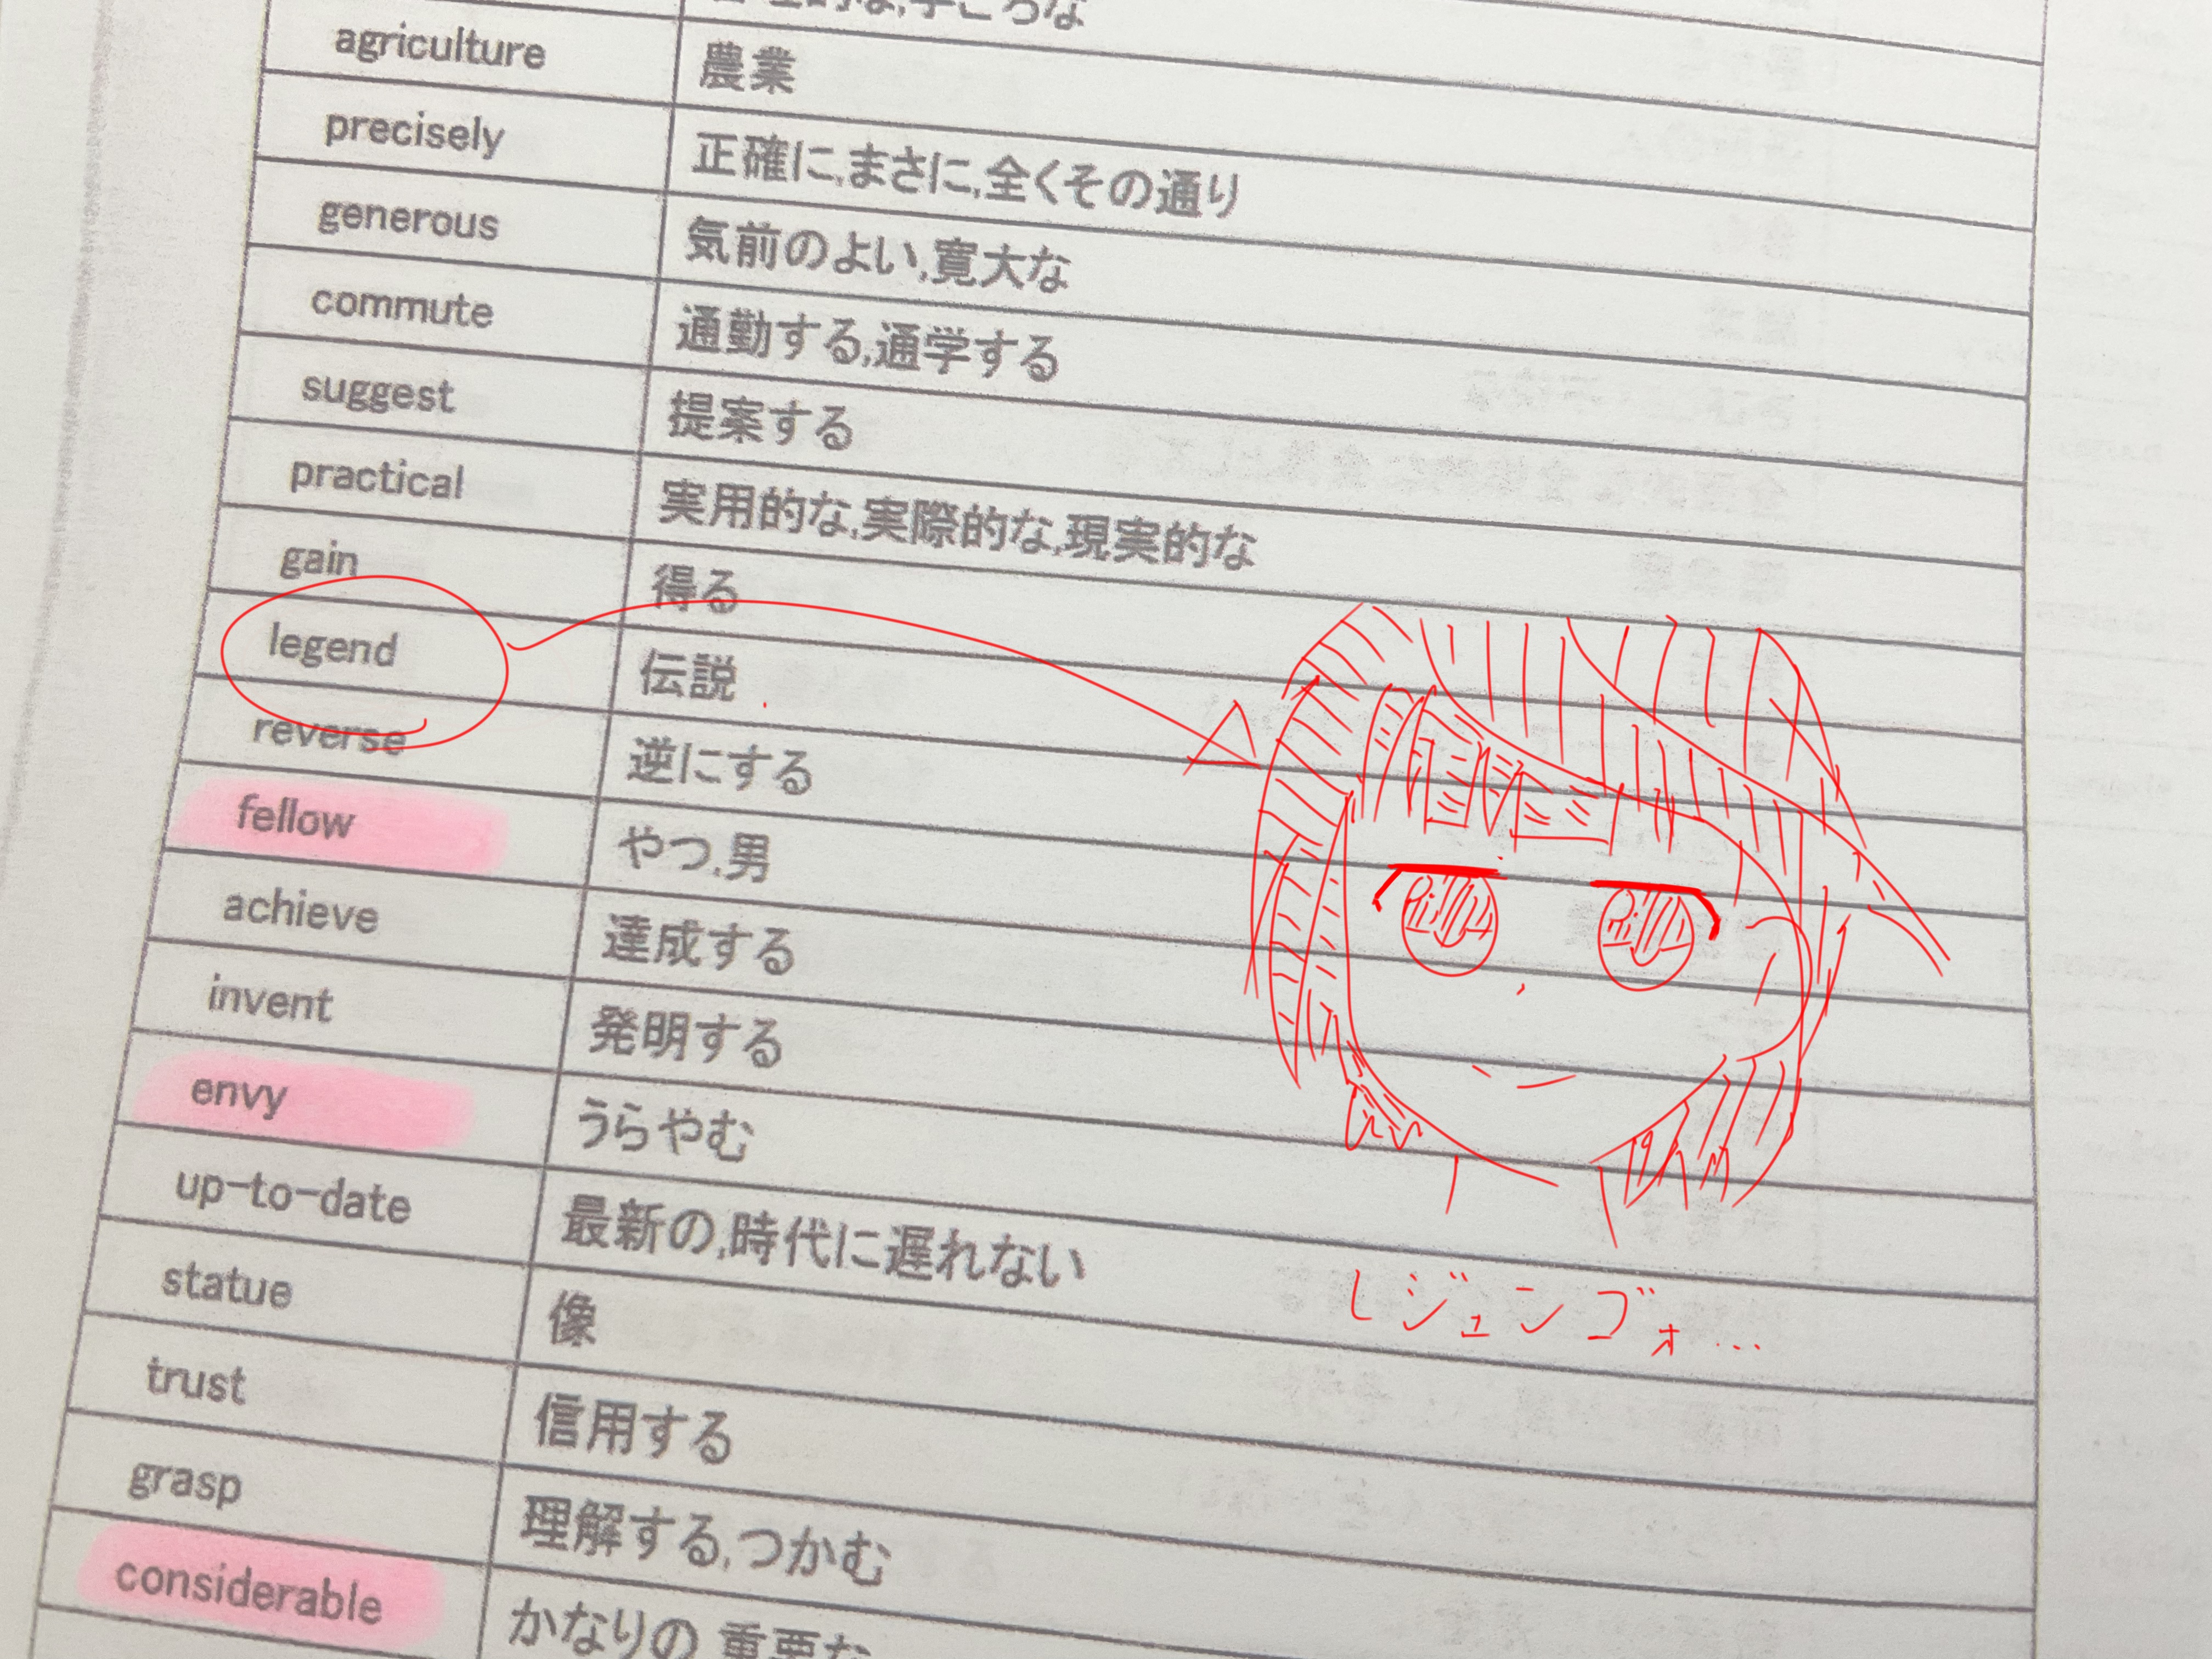 agriculture 農業
precisely 正確に,まさに,全くその通り
generous 気前のよい,寛大な
commute 通勤する,通学する
suggest 提案する
practical 実用的な,実際的な,現実的な
gain 得る
legend 伝説
reverse 逆にする
fellow やつ,男
achieve 達成する
invent 発明する
envy うらやむ
up-to-date 最新の,時代に遅れない
statue 像
trust 信用する
grasp 理解する,つかむ
considerable かなりの 重要な
レジェンゴォ…